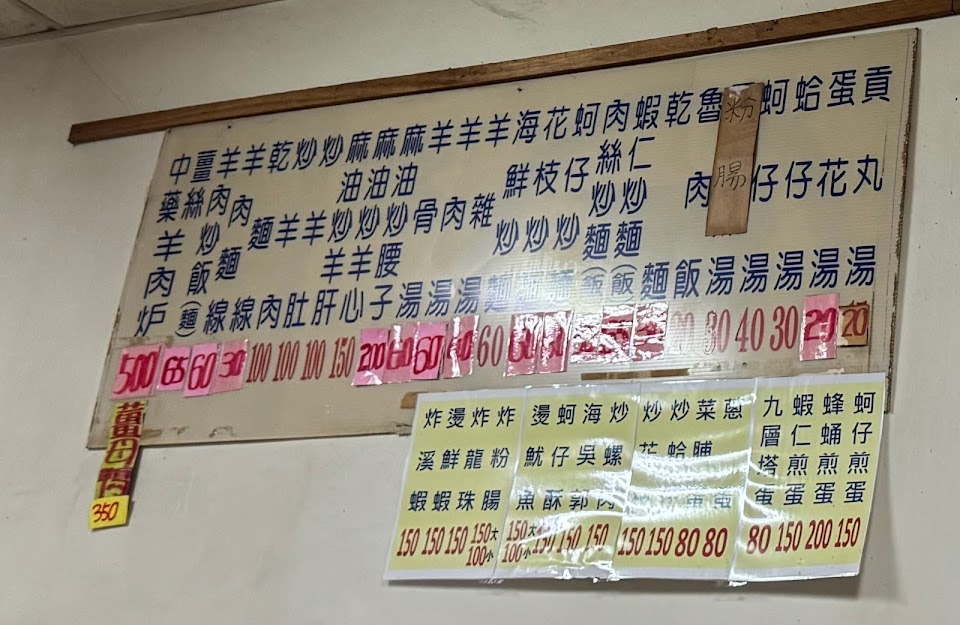 中藥羊肉炉
薑絲
羊肉炒飯(麵)
羊肉麵線
乾麵線
炒羊肉
炒羊肚
麻油炒羊肝
麻油炒羊心
麻油炒腰子
羊骨湯
羊肉湯
羊雜湯
海鮮炒麵
花枝炒麵
蚵仔炒麵
肉絲炒麵(飯)
蝦仁炒麵(飯)
乾麵
魯肉飯
粉腸湯
蚵仔湯
蛤仔湯
蛋花湯
貢丸湯
500 65 60 30 100 100 100 150 200 60 60 60 30 40 30 20 20
薑母鴨 350
炸溪蝦 150
燙鮮蝦 150
炸龍珠 150
炸粉腸 150大 100小
燙魷魚 150大 100小
蚵仔酥 150
海吳郭 150
炒螺肉 150
炒花 150
炒蛤 150
菜脯蛋 80
蔥蛋 80
九層塔蛋 80
蝦仁煎蛋 150
蜂蛹煎蛋 200
蚵仔煎蛋 150